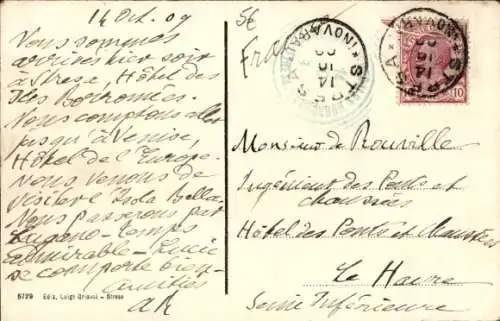 14 Oct. 09
Nous sommes
arrivés hier soir
à Stresa, Hôtel des
Iles Borromées.
Nous comptons aller
jusqu'à Venise,
Hôtel de l'Europe.
Nous venons de
visiter Isola Bella
Nous passerons par
Lugano - Temps
admirable - Lucie
se comporte bien
Amitiés
AR
5729 Ediz. Luigi - Stresa
STRESA
(NOVARA)
14
10
09
STRESA
(NOVARA)
14
10
10
Monsieur de Rouville
Ingénieur des Ponts et
chaussées
Hôtel des Ponts et chaussées
Le Havre
Seine Inférieure